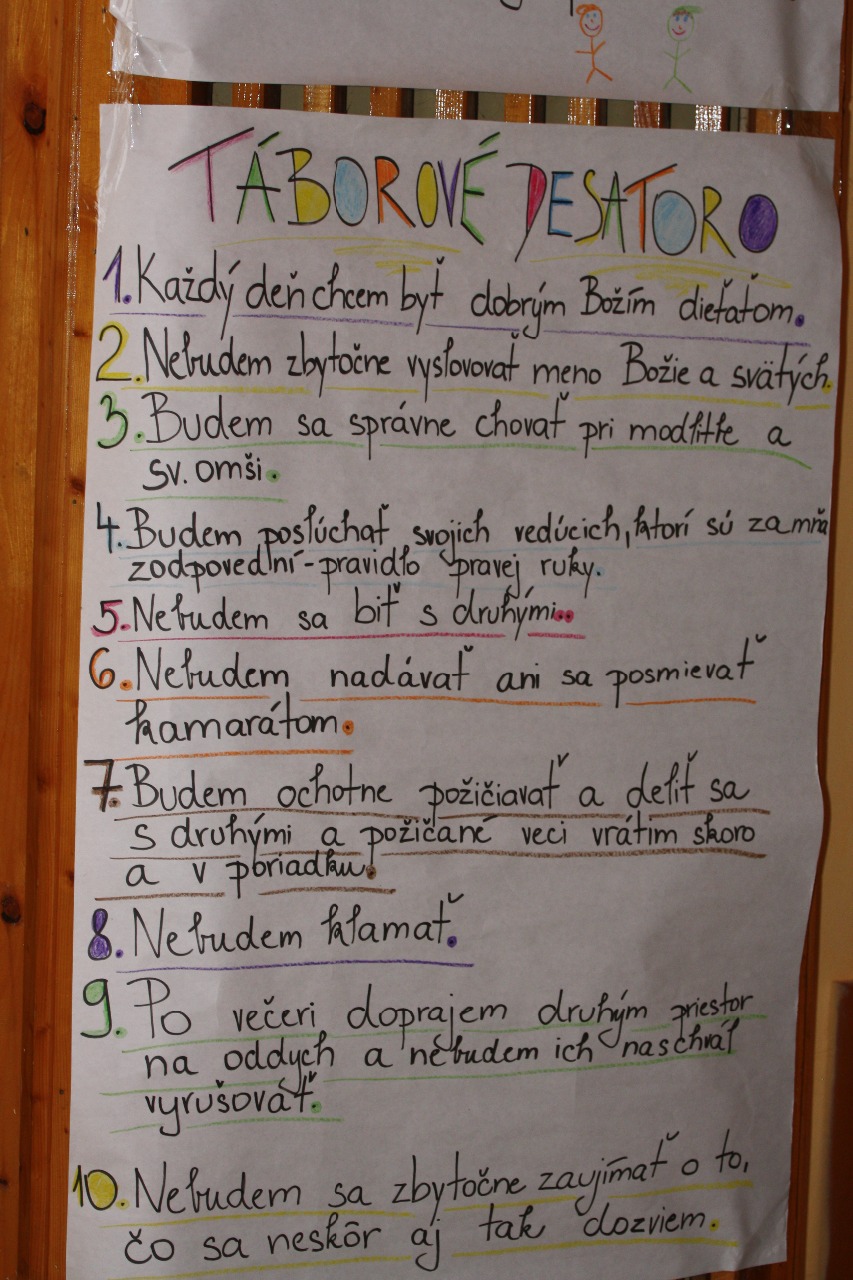 TÁBOROVÉ DESATORO
1. Každý deň chcem byť dobrým Božím dieťaťom.
2. Nebudem zbytočne vyslovovať meno Božie a svätých.
3. Budem sa správne chovať pri modlitle a
sv. omši.
4. Budem poslúchať svojich vedúcich, ktorí sú za mňa
zodpovední - pravidlo pravej ruky.
5. Nebudem sa biť s druhými..
6. Nebudem nadávať ani sa posmievať
kamarátom.
7. Budem ochotne požičiavať a deliť sa
s druhými a požičané veci vrátim skoro
a v poriadku.
8. Nebudem klamať.
9. Po večeri doprajem druhým priestor
na oddych a nebudem ich naschvál
vyrušovať.
10. Nebudem sa zbytočne zaujímať o to,
čo sa neskôr aj tak dozviem.